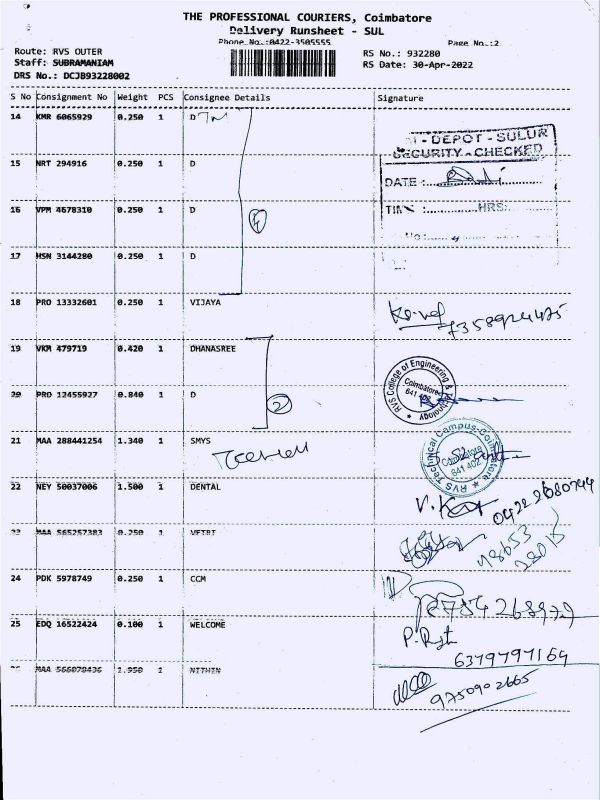 THE PROFESSIONAL COURIERS, Coimbatore
Delivery Runsheet - SUL
Phone No.:0422-3505555 Page No.:2
Route: RVS OUTER RS No.: 932280
Staff: SUBRAMANIAM RS Date: 30-Apr-2022
DRS No.: DCJB93228002
S No Consignment No Weight PCS Consignee Details Signature
14 KMR 6065929 0.250 1 D
DEPOT - SULUR
SECURITY - CHECKED
15 NRT 294916 0.250 1 D
DATE :
16 VPM 4678310 0.250 1 D
TIME : HRS:
4
17 HSN 3144280 0.250 1 D
18 PRO 13332601 0.250 1 VIJAYA
7358924475
19 VKM 479719 0.420 1 DHANASREE
RVS College of Engineering & Technology
Coimbatore
641 402
20 PRO 12455927 0.840 1 D
2
21 MAA 288441254 1.340 1 SMYS
RVS Technical Campus-Coimbatore
Coimbatore
641 402
22 NEY 50037006 1.500 1 DENTAL
0422 2680744
23 MAA 565257383 0.250 1 VETRI
24 PDK 5978749 0.250 1 CCM
25 EDQ 16522424 0.100 1 WELCOME
6379797169
MAA 566070436 1.950 1 NITHIN
9750902665